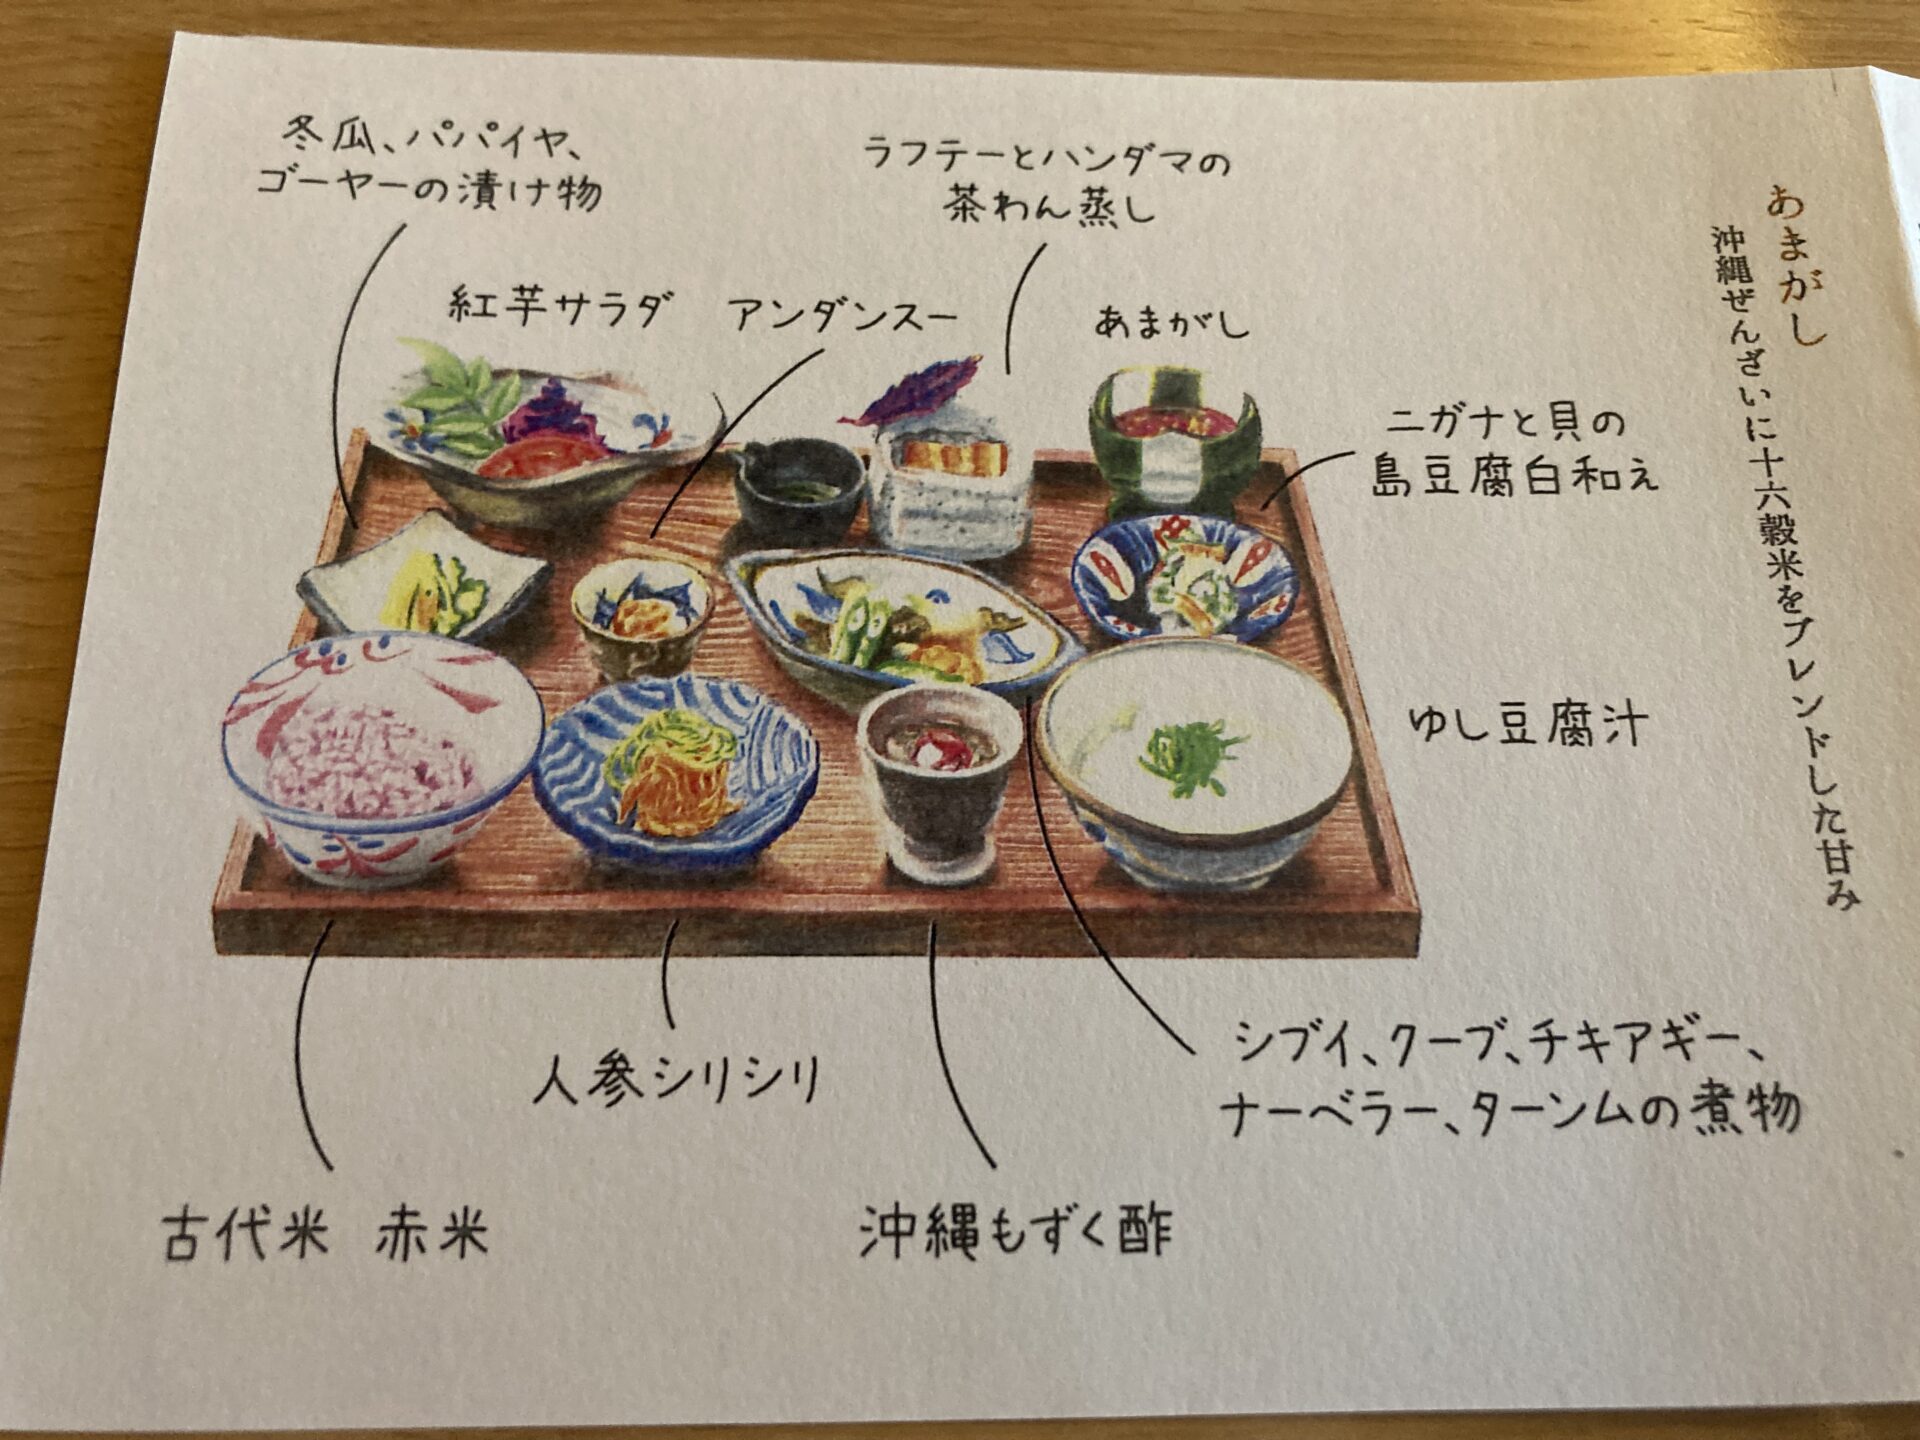 冬瓜、パパイヤ、
ゴーヤーの漬け物
ラフテーとハンダマの
茶わん蒸し
紅芋サラダ
アンダンスー
あまがし
ニガナと貝の
島豆腐白和え
ゆし豆腐汁
シブイ、クーブ、チキアギー、
ナーベラー、ターンムの煮物
人参シリシリ
古代米 赤米
沖縄もずく酢
あまがし
沖縄ぜんざいに十六穀米をブレンドした甘み